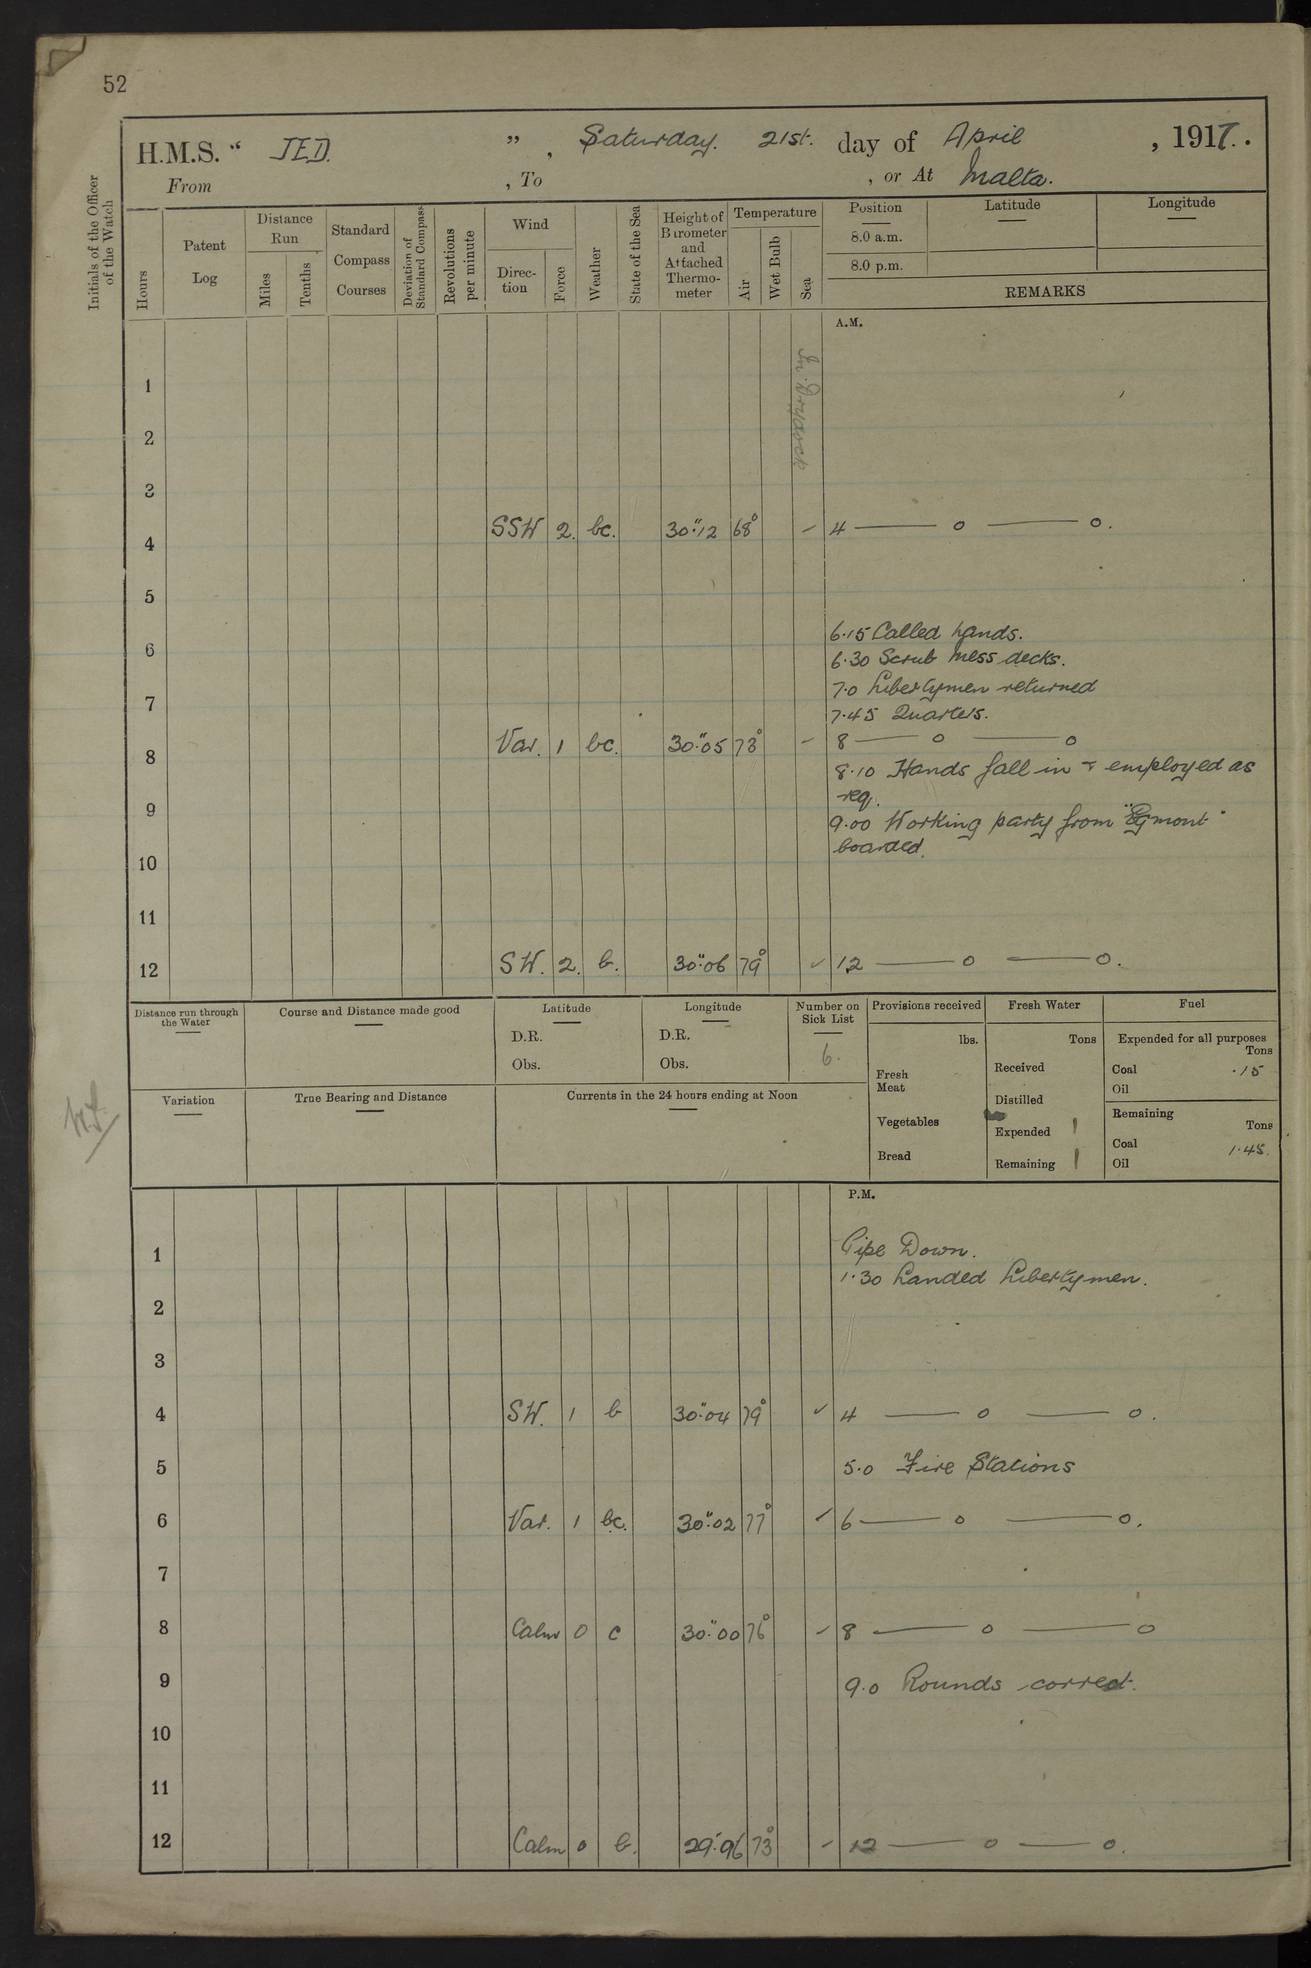 52
H.M.S. " JED. ", Saturday. 21st. day of April, 1917.
From , To , or At Malta.
Initials of the Officer of the Watch
Hours
Patent Log
Distance Run
Miles
Tenths
Standard Compass Courses
Deviation of Standard Compass
Revolutions per minute
Wind
Direction
Force
Weather
State of the Sea
Height of Barometer and Attached Thermometer
Temperature
Air
Wet Bulb
Sea
Position
8.0 a.m.
8.0 p.m.
Latitude
Longitude
REMARKS
A.M.
In Drydock
1
2
3
4 SSW 2. bc. 30".12 68° 4 — o — o.
5
6.15 Called hands.
6
6.30 Scrub Mess decks.
7.0 Libertymen returned
7
7.45 Quarters.
8 Var. 1 bc. 30".05 73° 8 — o — o
8.10 Hands fall in & employed as
req.
9
9.00 Working party from "Egmont"
boarded.
10
11
12 SW. 2. b. 30".06 79° 12 — o — o.
Distance run through the Water
Course and Distance made good
Latitude
D.R.
Obs.
Longitude
D.R.
Obs.
Number on Sick List
6.
Provisions received
lbs.
Fresh Meat
Vegetables
Bread
Fresh Water
Tons
Received
Distilled
Expended 1
Remaining 1
Fuel
Expended for all purposes
Tons
Coal .15
Oil
Remaining
Tons
Coal 1.45.
Oil
Variation
True Bearing and Distance
Currents in the 24 hours ending at Noon
P.M.
1 Pipe Down.
1.30 Landed Libertymen.
2
3
4 SW. 1 b 30".04 79° 4 — o — o.
5 5.0 Fire Stations
6 Var. 1 bc. 30".02 77° 6 — o — o.
7
8 Calm 0 c 30".00 76° 8 — o — o
9 9.0 Rounds correct.
10
11
12 Calm 0 b. 29".96 73° 12 — o — o.